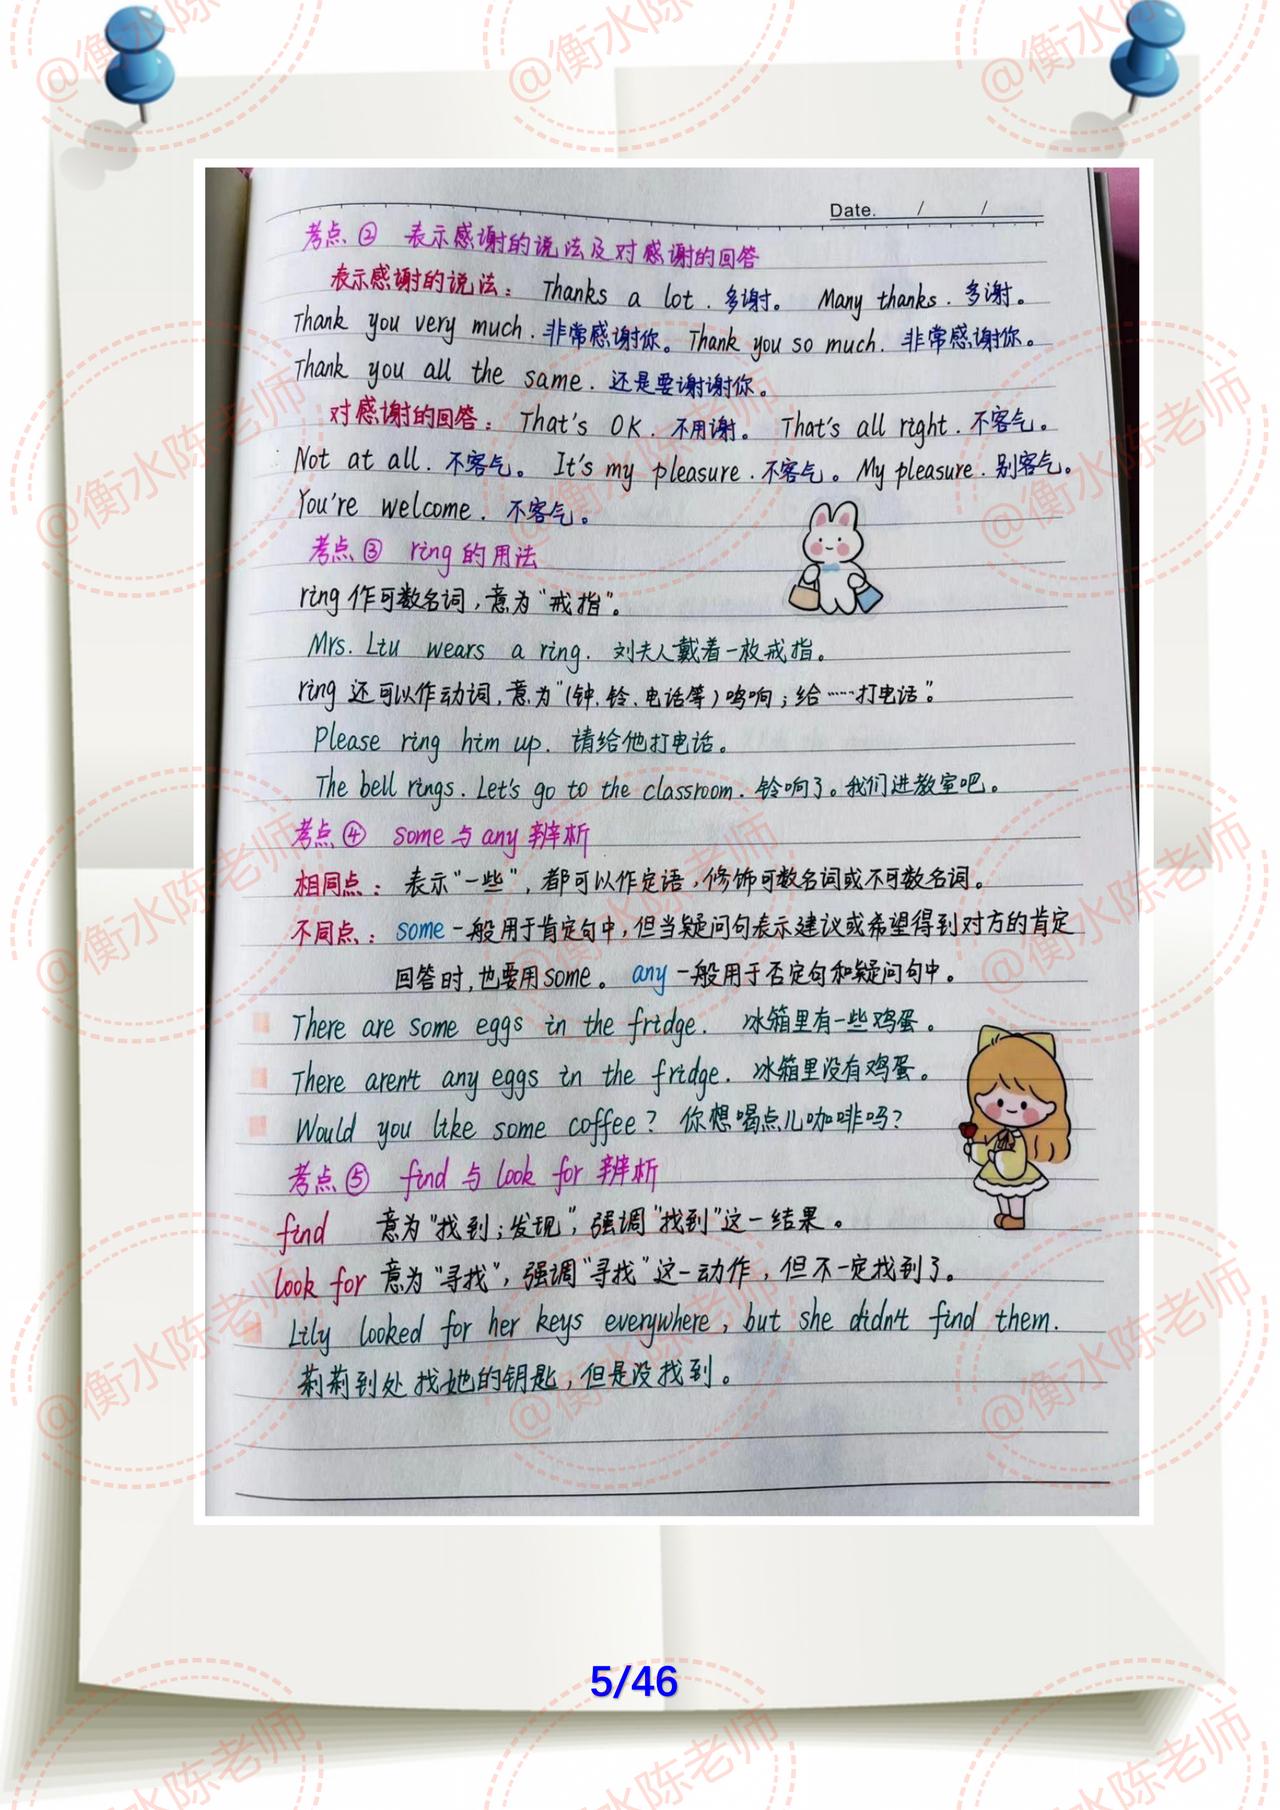 Date. / /
考点② 表示感谢的说法及对感谢的回答
表示感谢的说法：Thanks a lot. 多谢。 Many thanks. 多谢。
Thank you very much. 非常感谢你。Thank you so much. 非常感谢你。
Thank you all the same. 还是要谢谢你。
对感谢的回答：That's OK. 不用谢。 That's all right. 不客气。
Not at all. 不客气。 It's my pleasure. 不客气。My pleasure. 别客气。
You're welcome. 不客气。
考点③ ring的用法
ring作可数名词，意为"戒指"。
Mrs. Liu wears a ring. 刘夫人戴着一枚戒指。
ring还可以作动词，意为"(钟、铃、电话等)鸣响；给……打电话"。
Please ring him up. 请给他打电话。
The bell rings. Let's go to the classroom. 铃响了。我们进教室吧。
考点④ some与any辨析
相同点：表示"一些"，都可以作定语，修饰可数名词或不可数名词。
不同点：some一般用于肯定句中，但当疑问句表示建议或希望得到对方的肯定
回答时，也要用some。any一般用于否定句和疑问句中。
There are some eggs in the fridge. 冰箱里有一些鸡蛋。
There aren't any eggs in the fridge. 冰箱里没有鸡蛋。
Would you like some coffee? 你想喝点儿咖啡吗?
考点⑤ find与look for辨析
find 意为"找到；发现"，强调"找到"这一结果。
look for 意为"寻找"，强调"寻找"这一动作，但不一定找到了。
Lily looked for her keys everywhere, but she didn't find them.
莉莉到处找她的钥匙，但是没找到。
5/46
@衡水陈老师